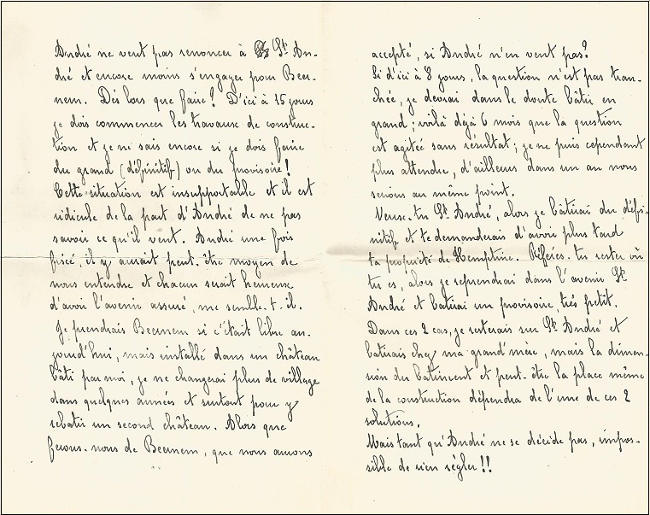 André ne veut pas renoncer à St An-
dré et encore moins s'engage pour Beer-
nem. Dès lors que faire? D'ici à 15 jours
je dois commencer les travaux de construc-
tion et je ne sais encore si je dois faire
du grand (définitif) ou du provisoire!
Cette situation est insupportable et il est
ridicule de la part d'André de ne pas
savoir ce qu'il veut. André une fois
fixé, il y aurait peut-être moyen de
nous entendre et chacun serait heureux
d'avoir l'avenir assuré, me semble-t-il.
Je prendrais Beernem si c'était libre au-
jourd'hui, mais installé dans un château
bâti par moi, je ne changerai plus de village
dans quelques années et surtout pour y
rebatir un second château. Alors que
ferons-nous de Beernem, que nous aurons
accepté, si André n'en veut pas?
Si d'ici à 8 jours, la question n'est pas tran-
chée, je devrai dans le doute bâtir en
grand; voilà déjà 6 mois que la question
est agitée sans résultat; je ne puis cependant
plus attendre, d'ailleurs dans un an nous
serions au même point.
Veux-tu St André, alors je bâtirai du défi-
nitif et te demanderais d'avoir plus tard
ta propriété de Hemptine. Préfères-tu rester où
tu es, alors je reprendrai dans l'avenir St
André et batirai un provisoire, très petit.
Dans ces 2 cas, je resterais sur St André et
batirais chez ma grand'mère, mais la dimen-
sion du batiment et peut-être la place même
de la construction dépendra de l'une de ces 2
solutions.
Mais tant qu'André ne se décide pas, impos-
sible de rien régler!!